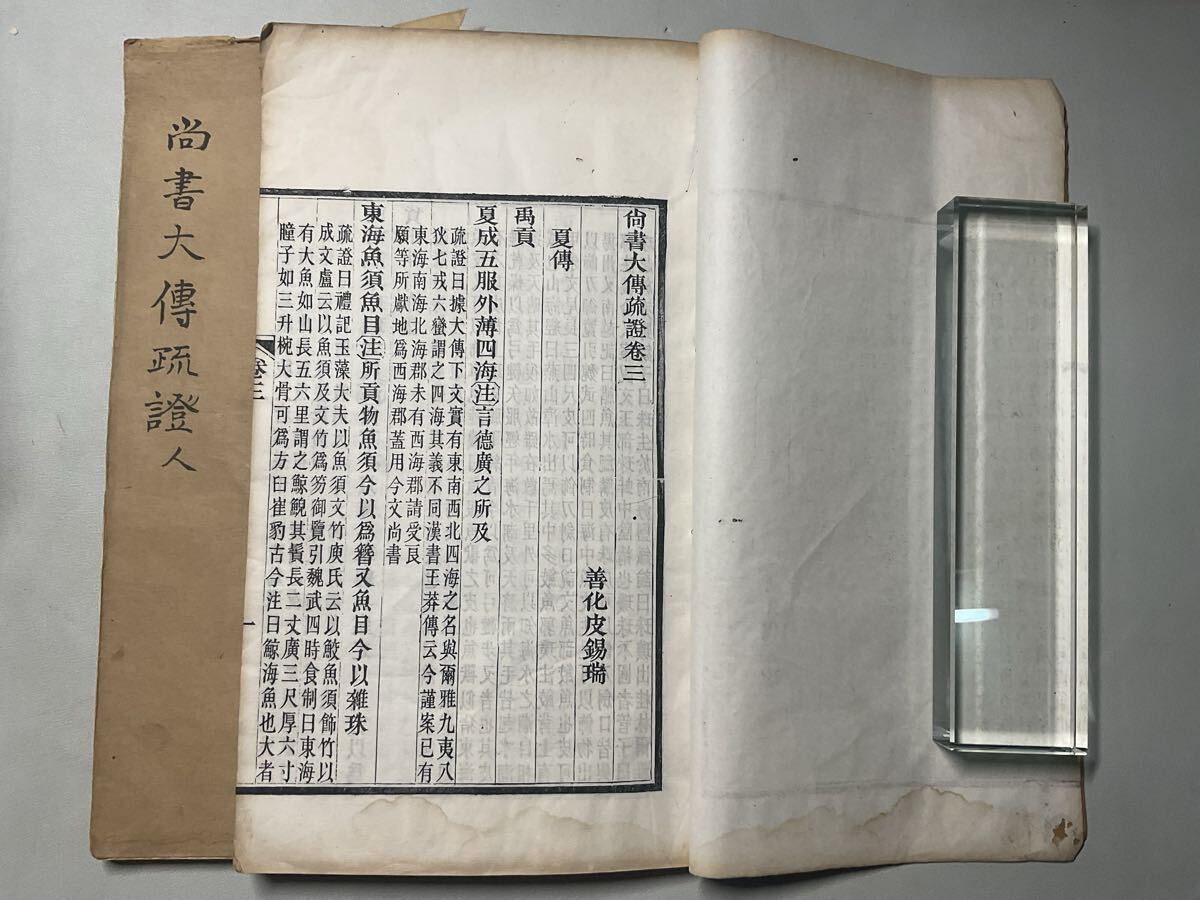 尚書大傳疏證人
尚書大傳疏證卷三
善化皮錫瑞
夏傳
禹貢
夏成五服外薄四海注言德廣之所及
疏證曰據大傳下文實有東南西北四海之名與爾雅九夷八
狄七戎六蠻謂之四海其義不同漢書王莽傳云今謹案已有
東海南海北海郡未有西海郡請受良
願等所獻地爲西海郡蓋用今文尚書
東海魚須魚目注所貢物魚須今以爲簪又魚目今以雜珠
疏證曰禮記玉藻大夫以魚須文竹庾氏云以鮫魚須飾竹以
成文盧云以魚須及文竹爲笏御覽引魏武四時食制曰東海
有大魚如山長五六里謂之鯨鯢其鬚長二丈廣三尺厚六寸
瞳子如三升椀大骨可爲方臼崔豹古今注曰鯨海魚也大者
卷三
一